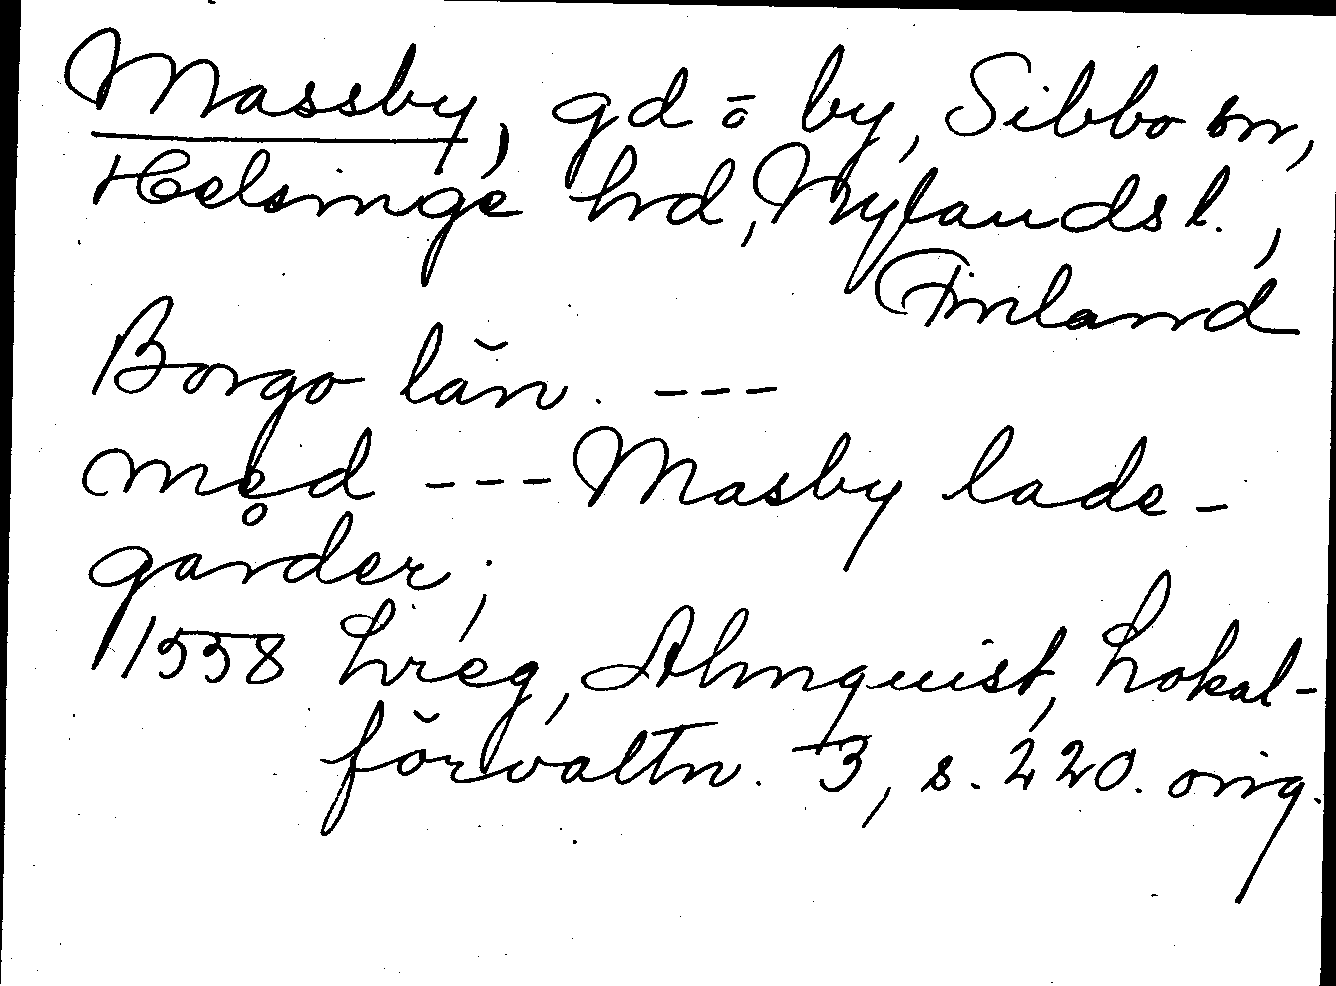 Massby, gd o by, Sibbo sn,
Helsinge hrd, Nylands l.,
Finland
Borgo län. ---
med --- Masby lade-
gårder;
1558 Lreg, Almquist, Lokal-
förvaltn. 3, s. 220. orig.